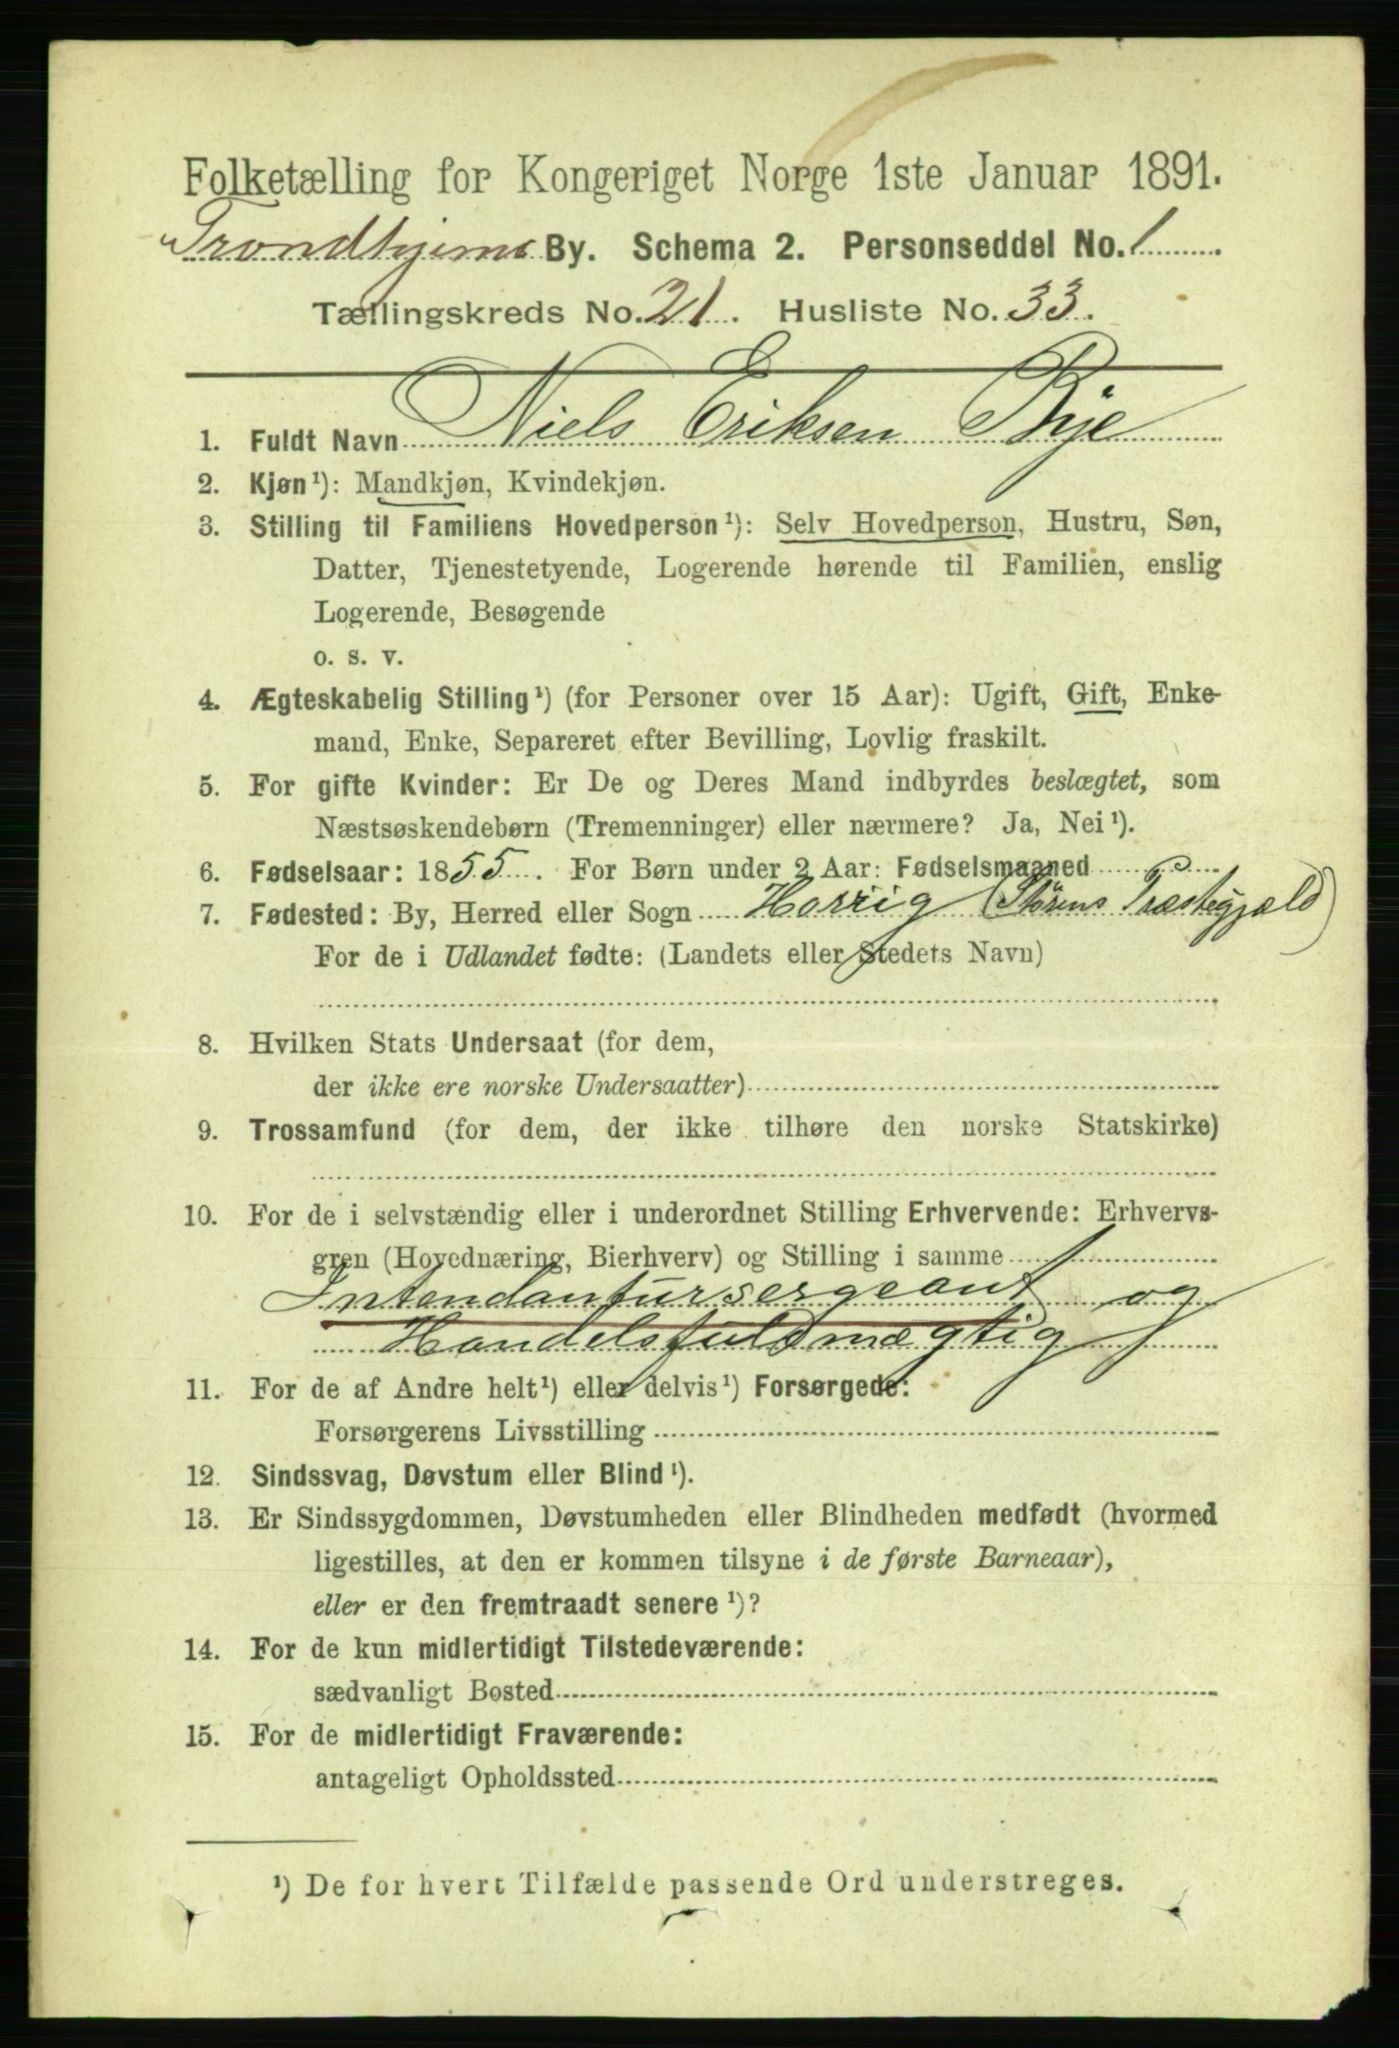 Folketælling for Kongeriget Norge 1ste Januar 1891.
Trondhjems By. Schema 2. Personseddel No. 1
Tællingskreds No. 21. Husliste No. 33.
1. Fuldt Navn Niels Eriksen Bye
2. Kjøn¹): Mandkjøn, Kvindekjøn.
3. Stilling til Familiens Hovedperson¹): Selv Hovedperson, Hustru, Søn,
Datter, Tjenestetyende, Logerende hørende til Familien, enslig
Logerende, Besøgende
o. s. v.
4. Ægteskabelig Stilling¹) (for Personer over 15 Aar): Ugift, Gift, Enke-
mand, Enke, Separeret efter Bevilling, Lovlig fraskilt.
5. For gifte Kvinder: Er De og Deres Mand indbyrdes beslægtet, som
Næstsøskendebørn (Tremenninger) eller nærmere? Ja, Nei¹).
6. Fødselsaar: 1855. For Børn under 2 Aar: Fødselsmaaned
7. Fødested: By, Herred eller Sogn Horrig (Størens Præstegjæld)
For de i Udlandet fødte: (Landets eller Stedets Navn)
8. Hvilken Stats Undersaat (for dem,
der ikke ere norske Undersaatter)
9. Trossamfund (for dem, der ikke tilhøre den norske Statskirke)
10. For de i selvstændig eller i underordnet Stilling Erhvervende: Erhvervs-
gren (Hovednæring, Bierhverv) og Stilling i samme
Intendantursergeant og
Handelsfuldmægtig
11. For de af Andre helt¹) eller delvis¹) Forsørgede:
Forsørgerens Livsstilling
12. Sindssvag, Døvstum eller Blind¹).
13. Er Sindssygdommen, Døvstumheden eller Blindheden medfødt (hvormed
ligestilles, at den er kommen tilsyne i de første Barneaar),
eller er den fremtraadt senere¹)?
14. For de kun midlertidigt Tilstedeværende:
sædvanligt Bosted
15. For de midlertidigt Fraværende:
antageligt Opholdssted
¹) De for hvert Tilfælde passende Ord understreges.